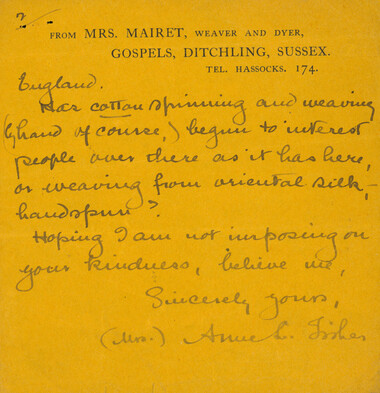 2
FROM MRS. MAIRET, WEAVER AND DYER,
GOSPELS, DITCHLING, SUSSEX.
TEL. HASSOCKS. 174.
England.
Has cotton spinning and weaving
(hand of course,) begun to interest
people over there as it has here,
or weaving from oriental silk,
handspun?
Hoping I am not imposing on
your kindness, believe me,
Sincerely yours,
(Mrs.) Anne L. Fisher